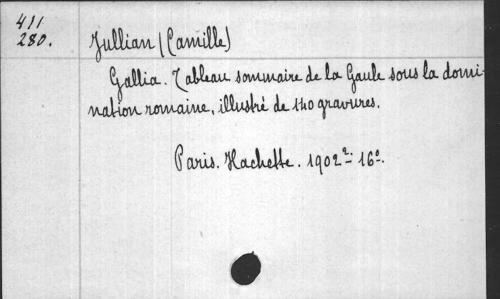 411
280.
Jullian (Camille)
Gallia. Tableau sommaire de la Gaule sous la domi-
nation romaine, illustré de 140 gravures.
Paris. Hachette. 1902². 16º.